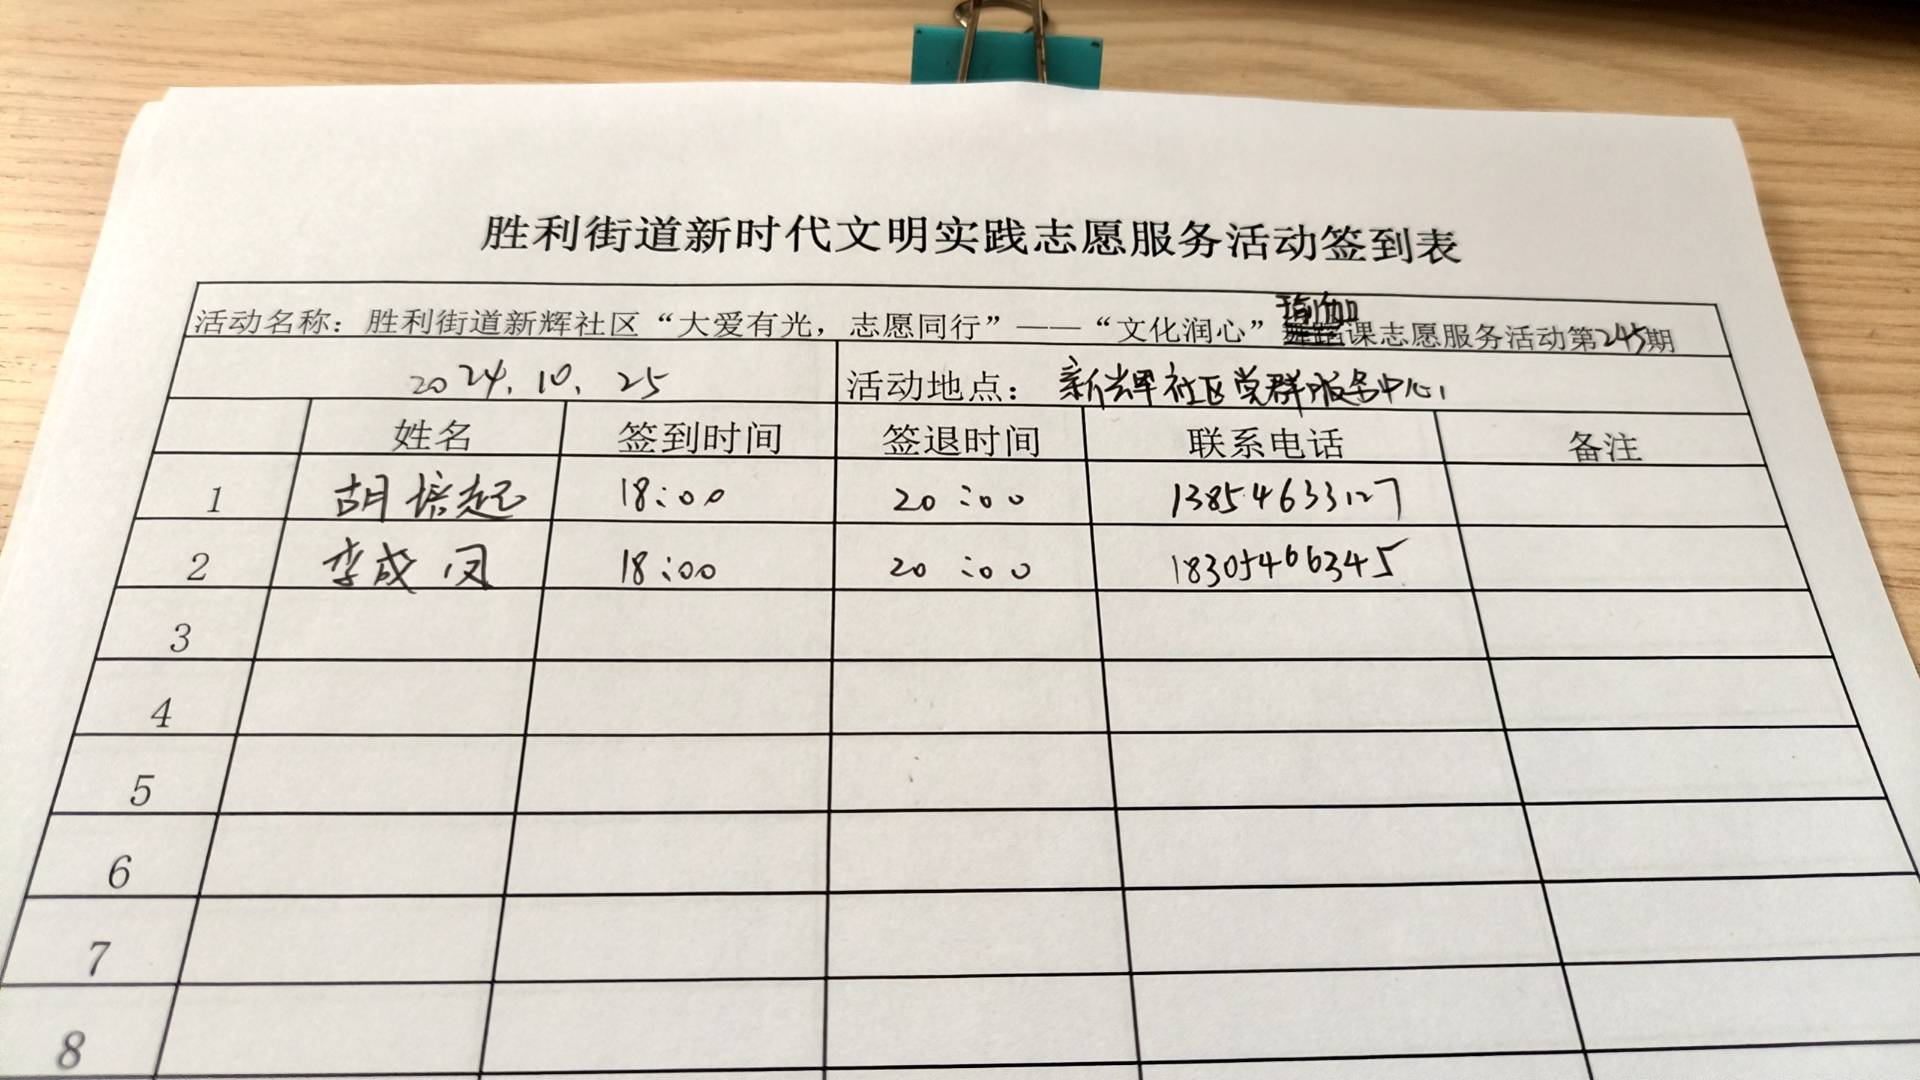 胜利街道新时代文明实践志愿服务活动签到表
瑜伽
活动名称：胜利街道新辉社区“大爱有光，志愿同行”——“文化润心”舞蹈课志愿服务活动第245期
2024.10.25 活动地点：新辉社区党群服务中心
姓名 签到时间 签退时间 联系电话 备注
1 胡培起 18:00 20:00 13854633127
2 李成凤 18:00 20:00 18305466345
3
4
5
6
7
8